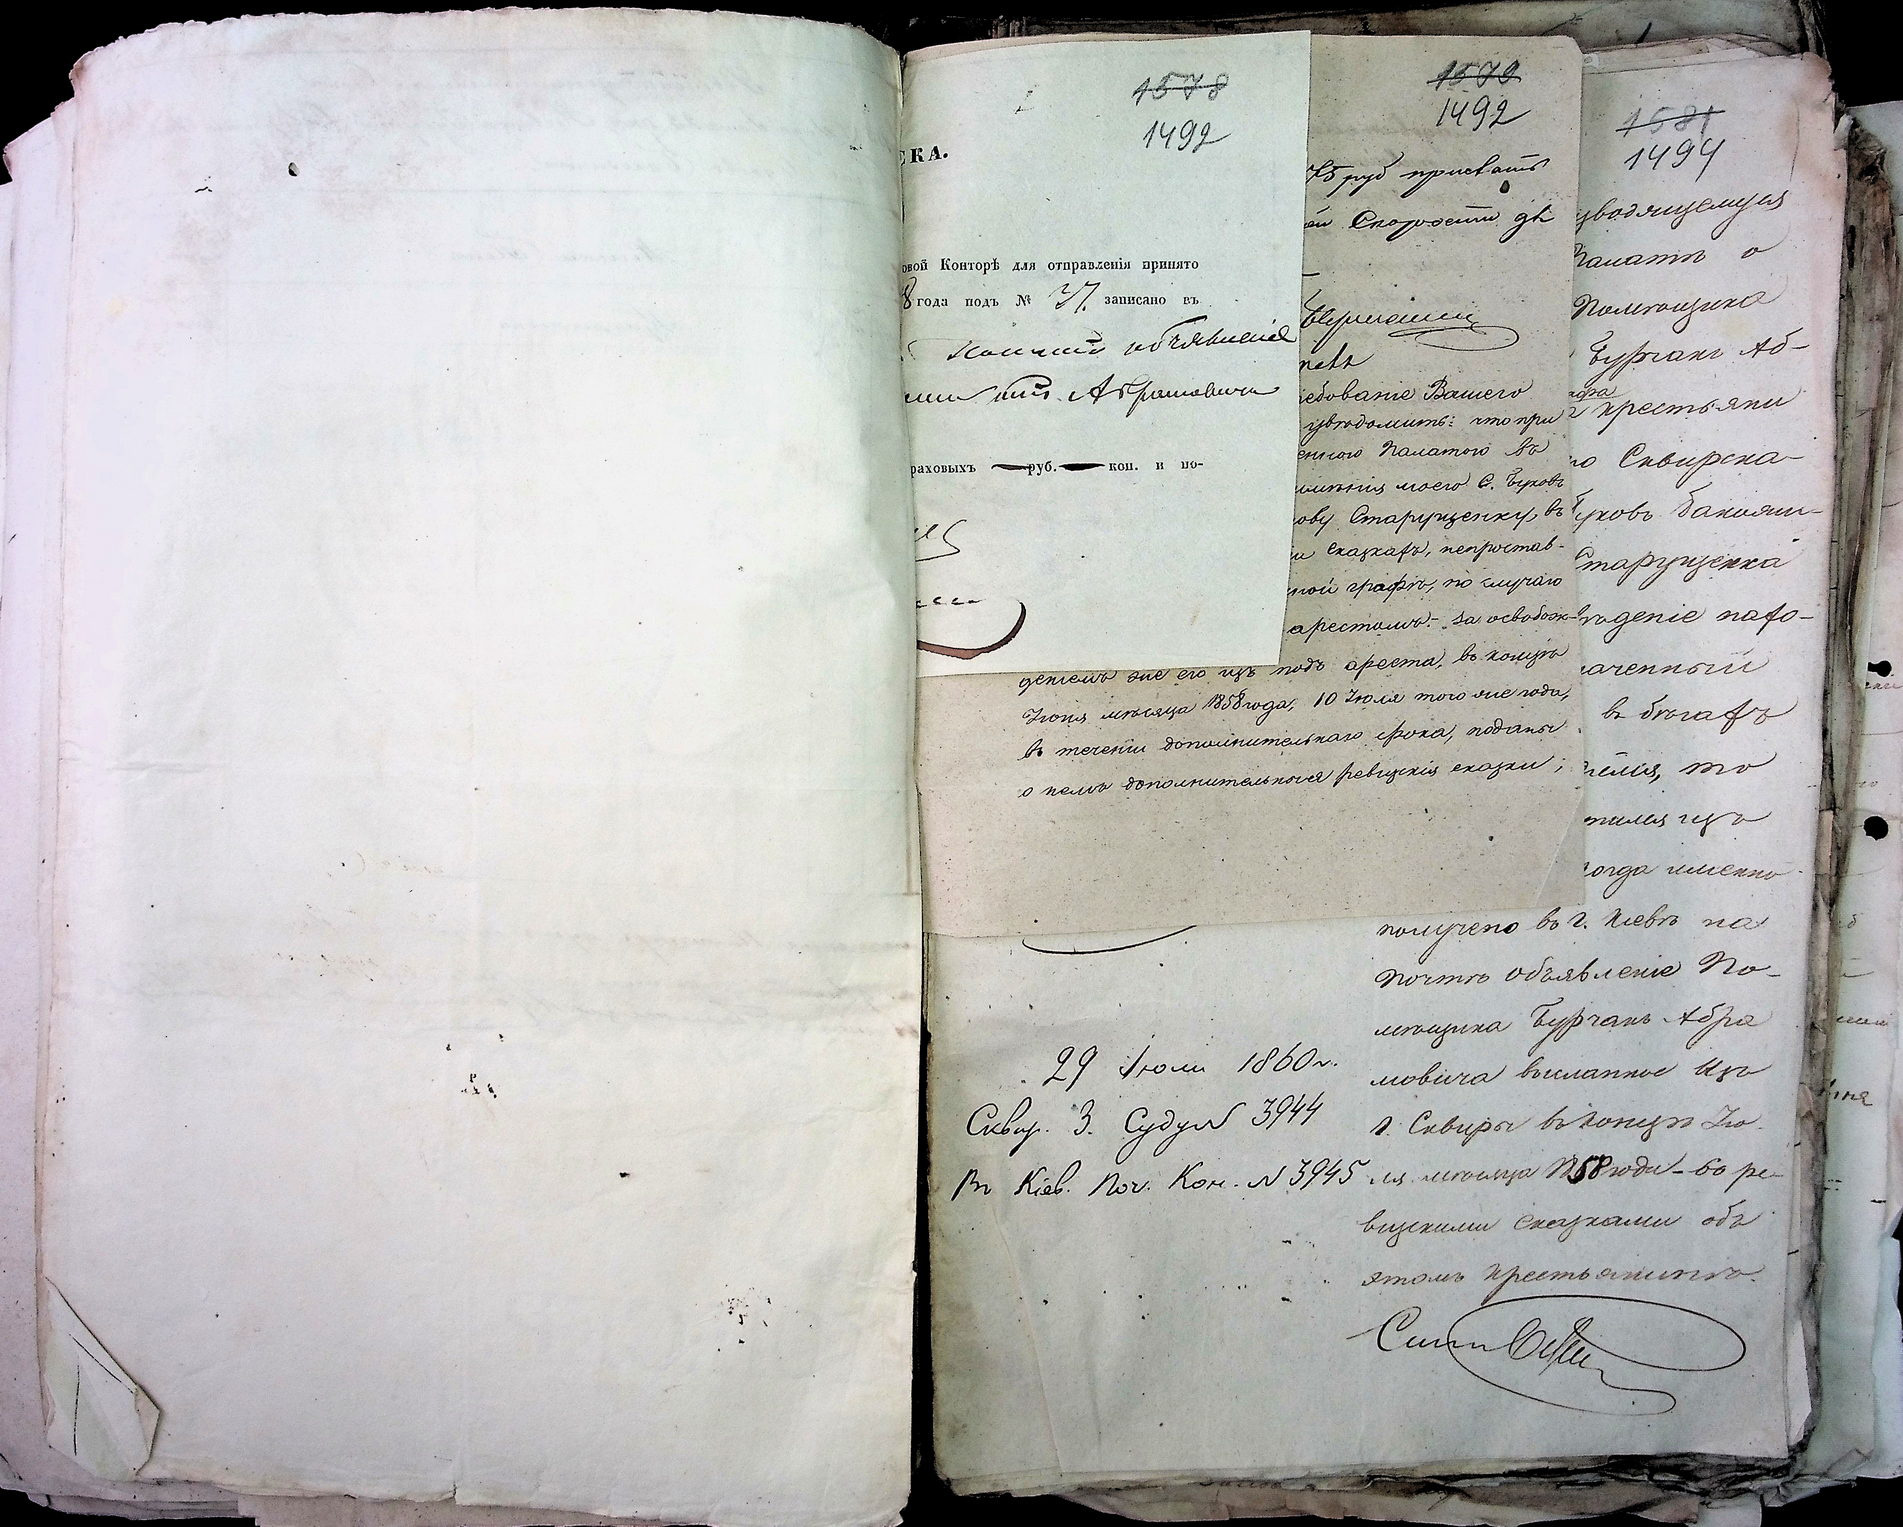 1578
1492
СКА.
овой Конторѣ для отправленія принято
8 года подъ № 37. записано въ
объявленіе
Абрамовича
раховыхъ руб. коп. и по-
1579
1492
75 руб
нетъ
ребованіе Вашего
увѣдомить: что при
еннаго Палатою въ
имѣнія моего С. Буковъ
ову Старущенку, въ
и сказкахъ, непростав-
ной графѣ, по случаю
арестомъ. за освобож-
деніемъ же его изъ подъ ареста, въ концѣ
Іюня мѣсяца 1858 года, 10 Іюля того же года,
въ теченіи дополнительнаго срока, поданы
о немъ дополнительныя ревизскія сказки;
1581
1494
зводящемуся
Палатѣ о
Помѣщика
Бурчакъ Аб-
крестьяни
го Сквирска-
Буковъ
Старущенка
рожденіе нахо-
наченный
въ бѣгахъ
то
тился изъ
когда именно
получено въ г. Кіевѣ на
почтѣ объявленіе По-
мѣщика Бурчакъ Абра
мовича высланное изъ
г. Сквиры въ концѣ Ію-
ля мѣсяца 1858 года - съ ре-
визскими сказками объ
этомъ крестьянинѣ.
29 Іюля 1860 г.
Сквир. З. Суду № 3944
Въ Кіев. Поч. Кон. № 3945